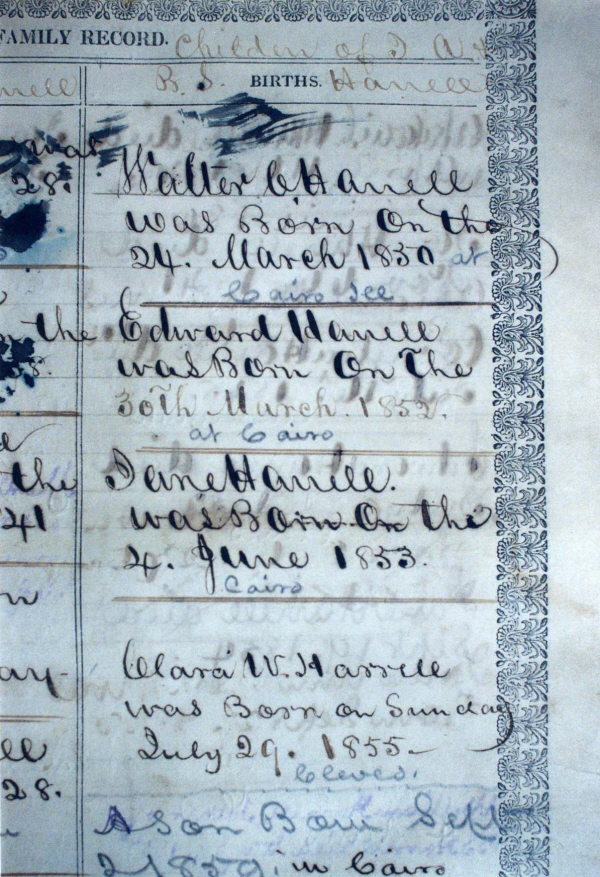 FAMILY RECORD. Children of J A H
B. S. BIRTHS. Harrell
was
28.
Walter C Harrell
was Born On the
24. March 1850 at
Cairo Ill
the
Edward Harrell
was Born On The
30th March. 1852.
at Cairo
the
Jane Harrell.
41
was Born On the
4. June 1853.
Cairo
Clara W. Harrell
was Born on Sunday
July 29. 1855.
Cleves.
28.
A Son Born Sept
2 1859. in Cairo